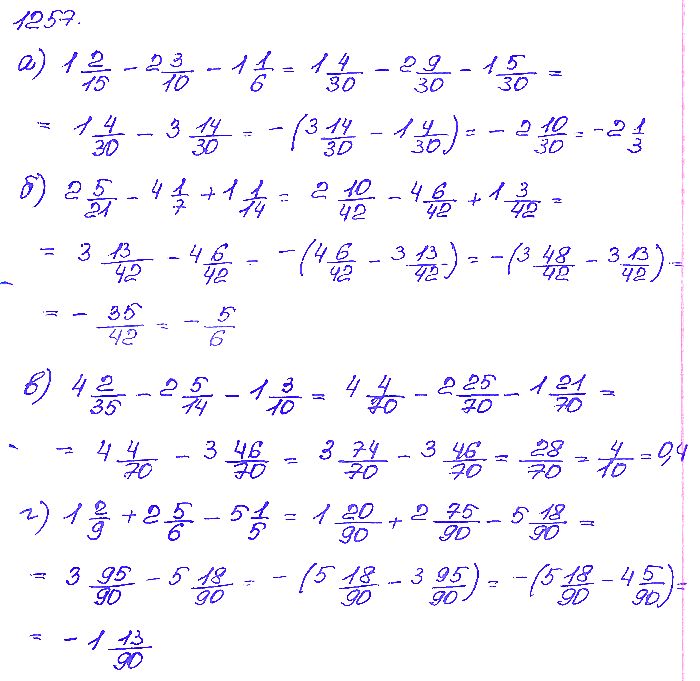 1257.
а) 1 2/15 - 2 3/10 - 1 1/6 = 1 4/30 - 2 9/30 - 1 5/30 =
= 1 4/30 - 3 14/30 = -(3 14/30 - 1 4/30) = - 2 10/30 = -2 1/3
б) 2 5/21 - 4 1/7 + 1 1/14 = 2 10/42 - 4 6/42 + 1 3/42 =
= 3 13/42 - 4 6/42 = -(4 6/42 - 3 13/42) = -(3 48/42 - 3 13/42) =
= - 35/42 = - 5/6
в) 4 2/35 - 2 5/14 - 1 3/10 = 4 4/70 - 2 25/70 - 1 21/70 =
= 4 4/70 - 3 46/70 = 3 74/70 - 3 46/70 = 28/70 = 4/10 = 0,4
г) 1 2/9 + 2 5/6 - 5 1/5 = 1 20/90 + 2 75/90 - 5 18/90 =
= 3 95/90 - 5 18/90 = -(5 18/90 - 3 95/90) = -(5 18/90 - 4 5/90) =
= - 1 13/90